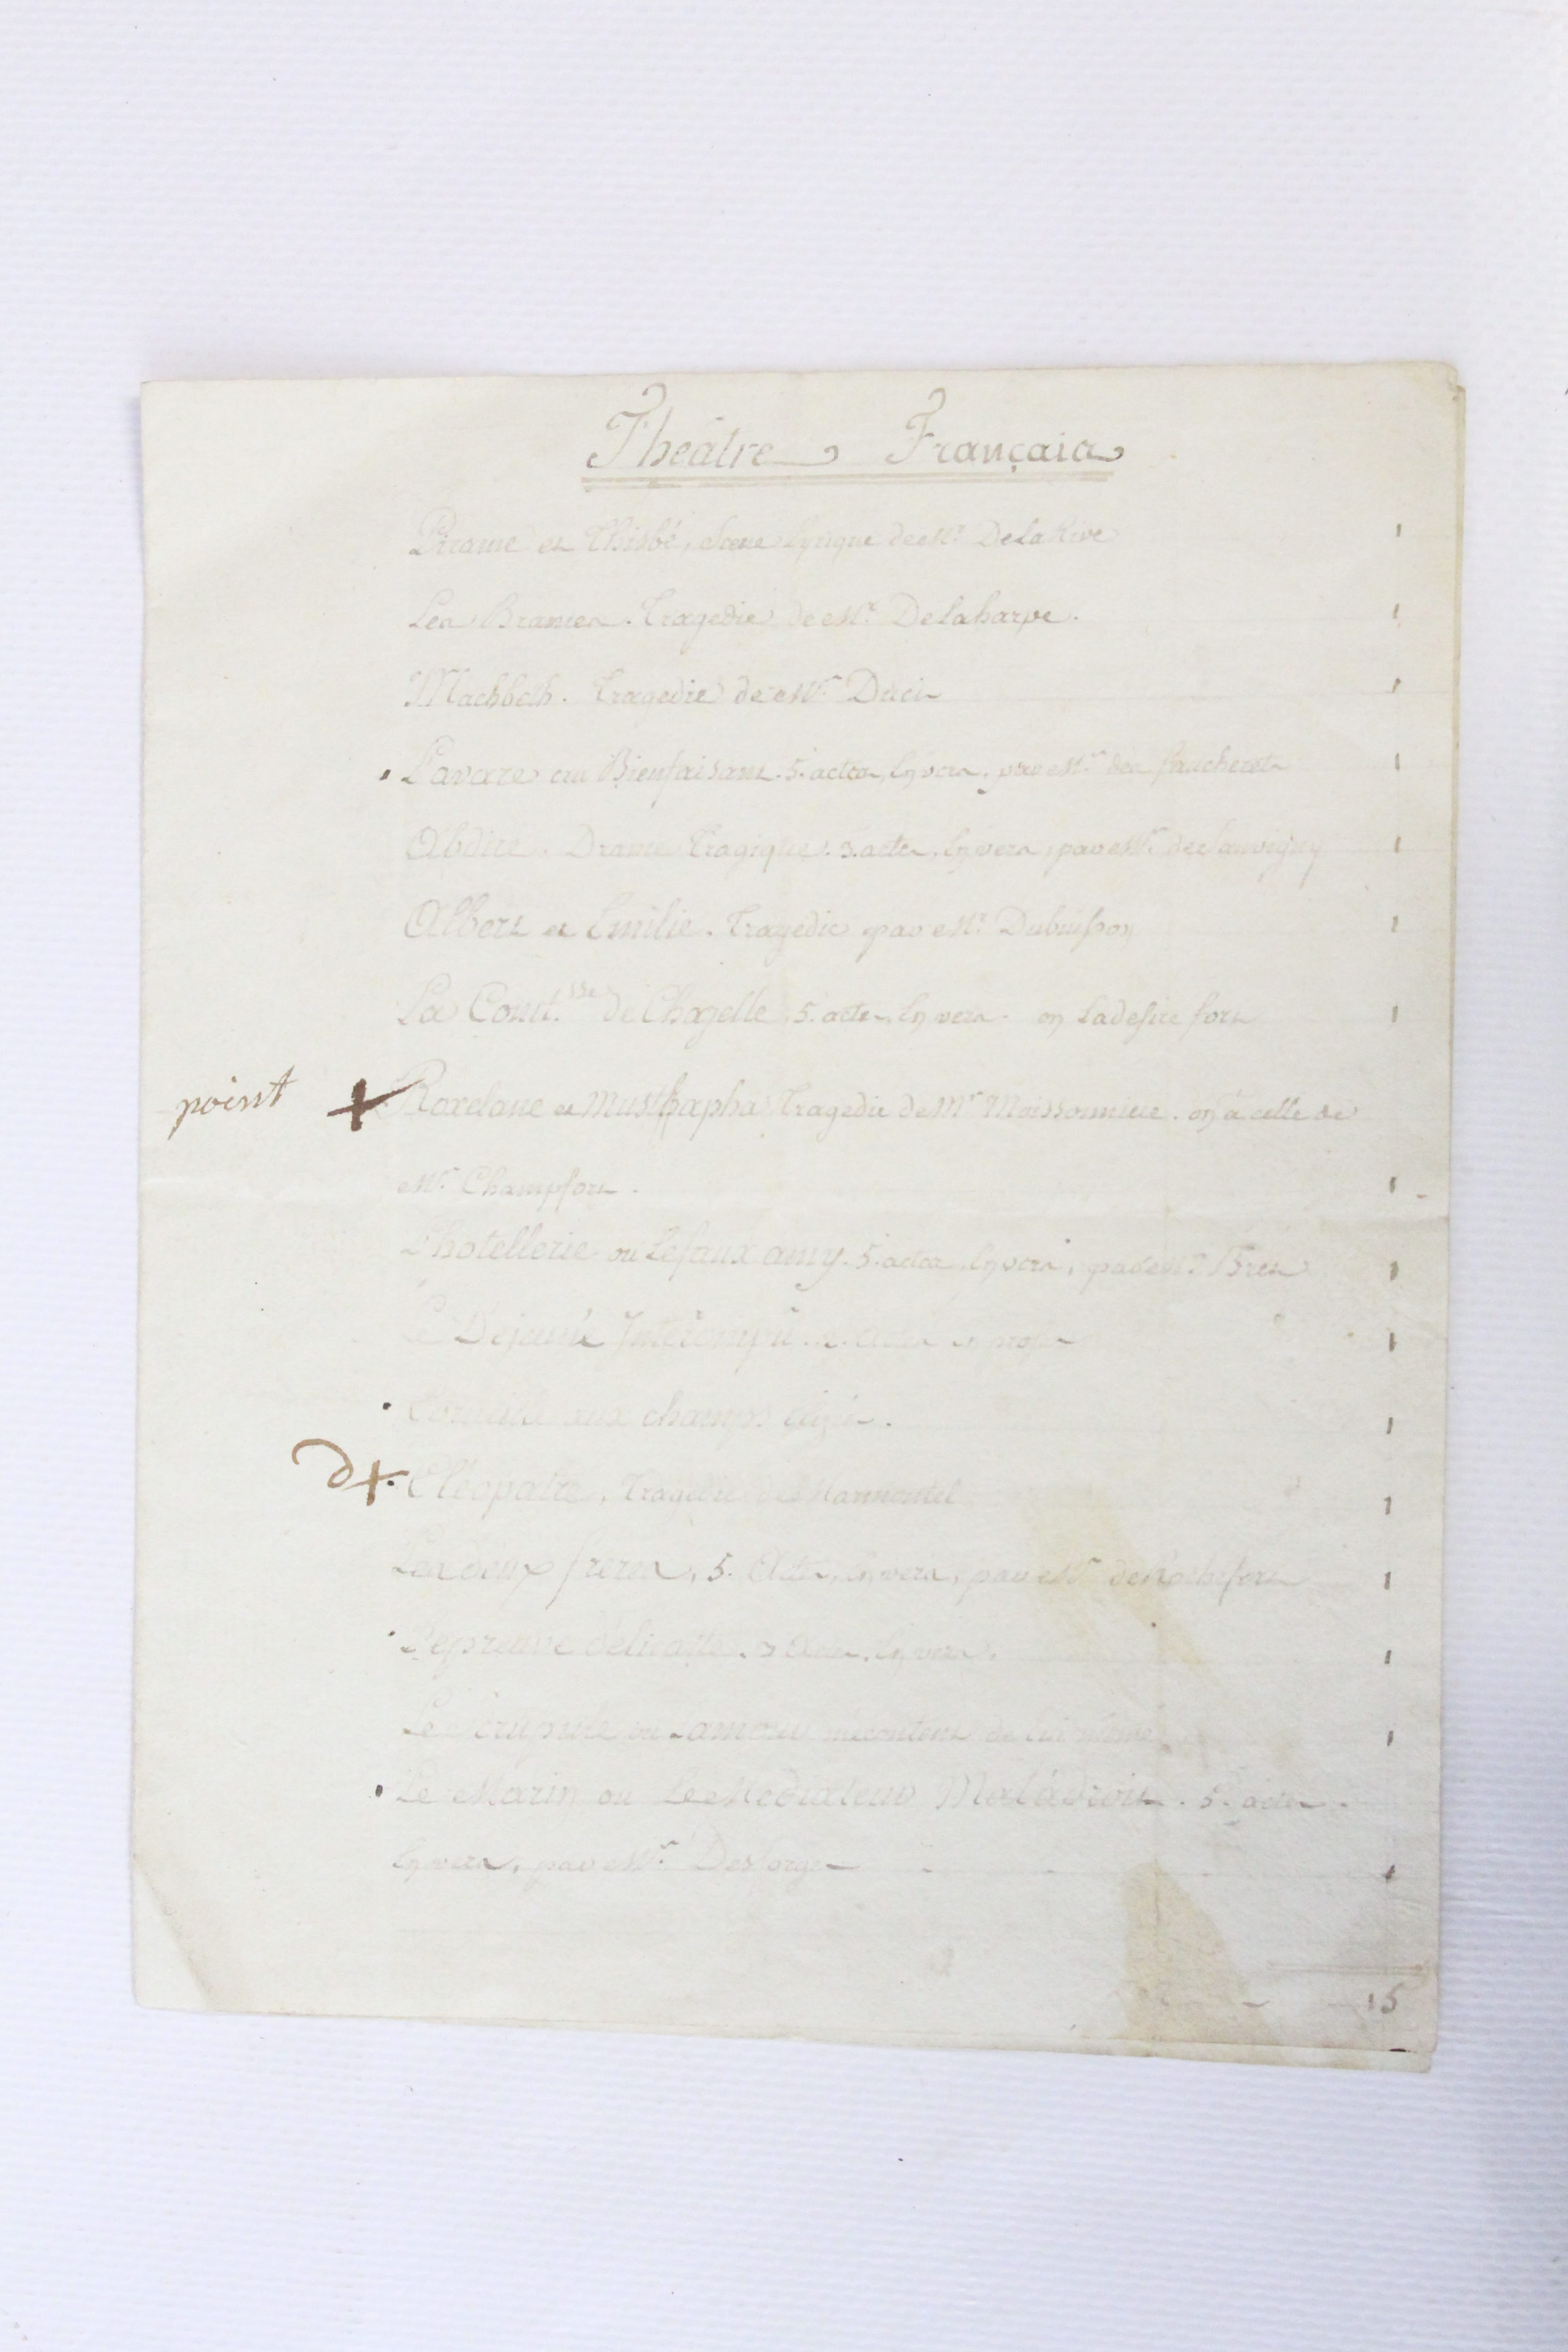 Théâtre Français
Pirame et Thisbé, scene Lyrique de Mr. De La Rive 1
Les Brames. Tragedie de Mr. Delaharpe. 1
Machbeth. Tragedie de Mr. Ducis 1
L'avare cru Bienfaisant. 5. actes, En vers, par Mr. des faucherets 1
Abdire. Drame Tragique. 3. actes, En vers, par Mr. de Sauvigny 1
Albert et Emilie. Tragedie par Mr. Dubuisson 1
La Comt.sse de Chazelle, 5. actes, En vers. on La desire fort 1
point + Roxelane et Musthapha Tragedie de Mr Maissonnieue. on a celle de
Mr. Champfort. 1
L'hotellerie ou Le faux amy. 5. actes, En vers, par Mr. Bret 1
Le Dejeuné Interompû. 2. actes en prose 1
Corneille aux champs Elizés. 1
d +. Cléopatre, Tragedie de Marmontel 1
Les deux freres, 5. Actes, En vers, par Mr. de Rochefort 1
L'epreuve délicatte. 3 Actes, En vers. 1
Le Scrupule ou L'amour mécontent de lui même 1
Le Marin ou Le Mediateur Maladroit. 5. actes.
En vers, par Mr. Desforges 1
15